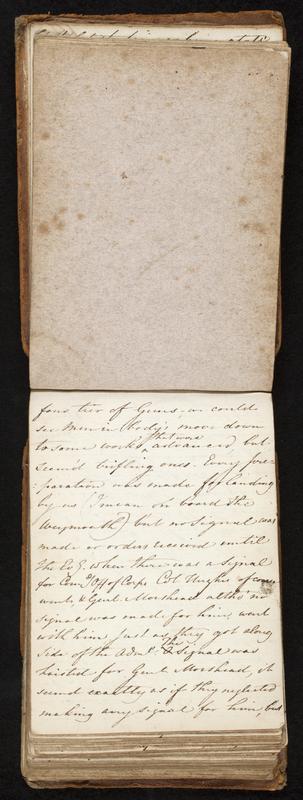 four tier of Guns - we could
see Men in body's move down
to some works that were advanced, but
seem'd trifling ones. Every pre=
=paration was made for landing
by us (I mean on board the
Weymouth) but no signal was
made or orders received until
the Ev'g. when there was a signal
for Com'g Off. of Corps Col Hughes of course
went, & Genl Morshead altho' no
signal was made for him, went
with him, just as they got along
side of the Adm'l. the signal was
hoisted for Genl Morshead, it
seemd exactly as if they neglected
making any signal for him, but